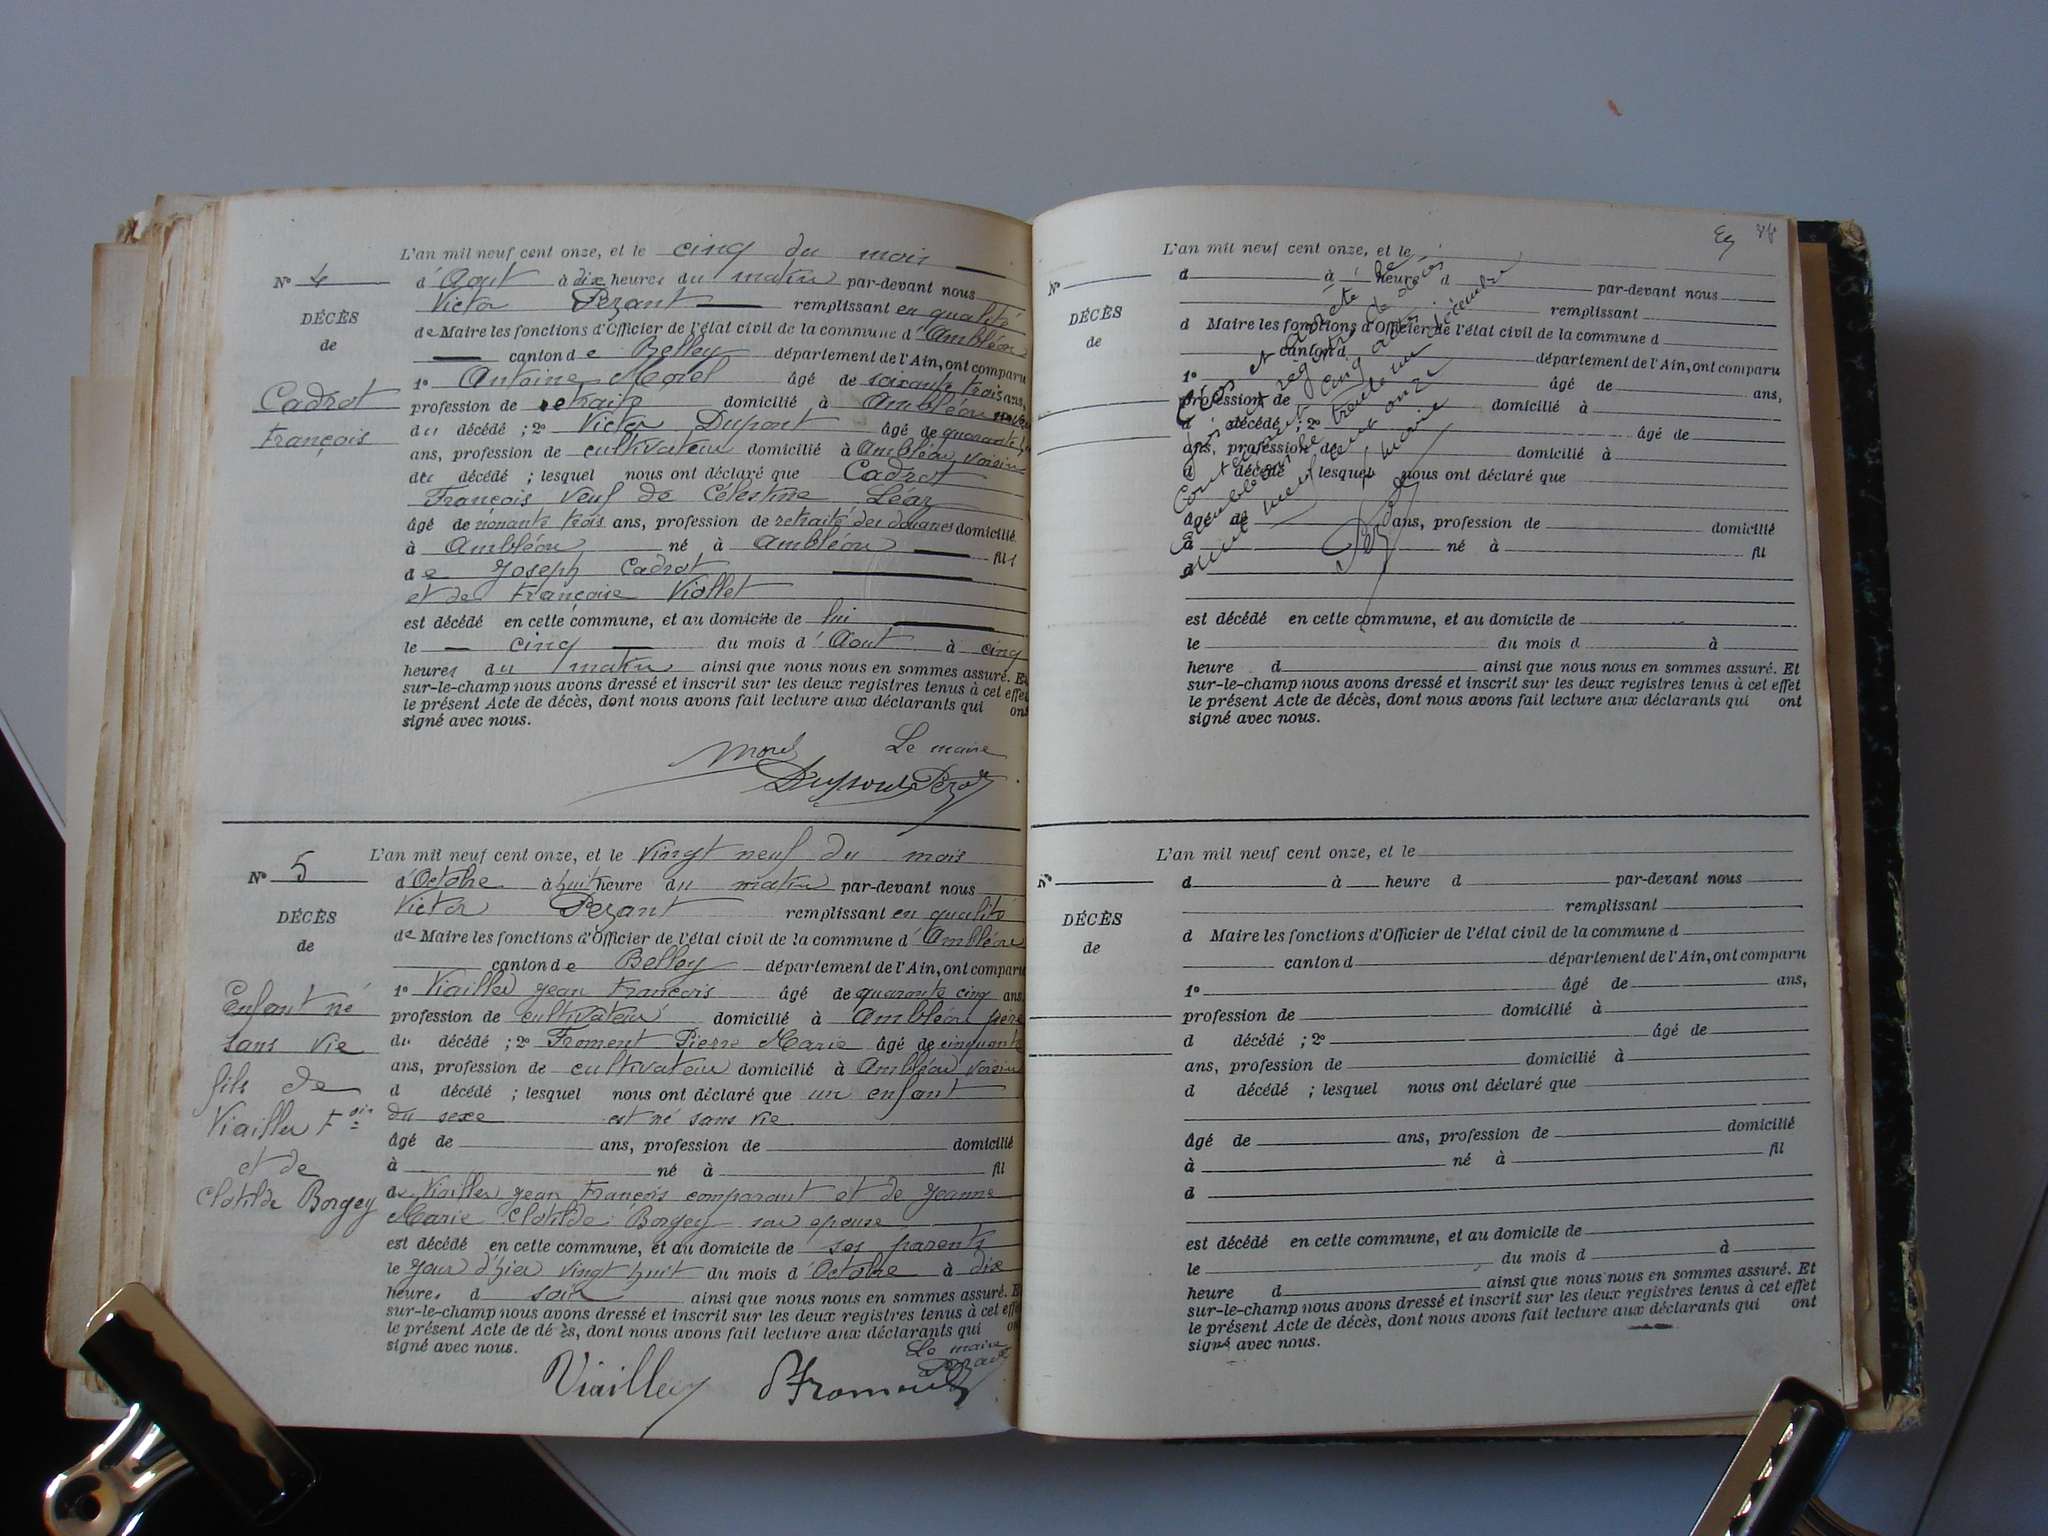 L'an mil neuf cent onze, et le cinq du mois
N° 4 d'Aout à dix heures du matin par-devant nous
Victor Pezant remplissant en qualité
DÉCÈS
de Maire les fonctions d'Officier de l'état civil de la commune d'Ambléon
de
canton de Belley département de l'Ain, ont comparu
1° Antoine Morel âgé de soixante trois ans,
Cadrot
profession de retraité domicilié à Ambléon neveu
du décédé ; 2° Victor Dupont âgé de quarante
François
ans, profession de cultivateur domicilié à Ambléon voisin
du décédé ; lesquel nous ont déclaré que Cadrot
François veuf de Célestine Léaz
âgé de nonante trois ans, profession de retraité des douanes domicilié
à Ambléon né à Ambléon fils
de Joseph Cadrot
et de Françoise Viollet
est décédé en cette commune, et au domicile de lui
le cinq du mois d'Aout à cinq
heures du matin ainsi que nous nous en sommes assuré. Et
sur-le-champ nous avons dressé et inscrit sur les deux registres tenus à cet effet
le présent Acte de décès, dont nous avons fait lecture aux déclarants qui ont
signé avec nous.
Morel Le maire
Pezant
L'an mil neuf cent onze, et le vingt neuf du mois
N° 5 d'Octobre à huit heure du matin par-devant nous
Victor Pezant remplissant en qualité
DÉCÈS
de Maire les fonctions d'Officier de l'état civil de la commune d'Ambléon
de
canton de Belley département de l'Ain, ont comparu
1° Viallier Jean François âgé de quarante cinq ans,
Enfant né
profession de cultivateur domicilié à Ambléon père
sans vie
du décédé ; 2° Froment Pierre Marie âgé de cinquante
ans, profession de cultivateur domicilié à Ambléon voisin
fils de
d décédé ; lesquel nous ont déclaré que un enfant
Viallier Fois
du sexe est né sans vie
âgé de ans, profession de domicilié
et de
à né à fil
Clotilde Borgey
de Viallier Jean François comparant et de Jeanne
Marie Clotilde Borgey son epouse
est décédé en cette commune, et au domicile de ses parents
le jour d'hier vingt huit du mois d'Octobre à dix
heures d soir ainsi que nous nous en sommes assuré. Et
sur-le-champ nous avons dressé et inscrit sur les deux registres tenus à cet effet
le présent Acte de décès, dont nous avons fait lecture aux déclarants qui ont
signé avec nous.
Le maire
Pezant
Viailley Froment
L'an mil neuf cent onze, et le
N° d à heure d par-devant nous
remplissant
DÉCÈS
d Maire les fonctions d'Officier de l'état civil de la commune d
de
canton d département de l'Ain, ont comparu
1° âgé de ans,
profession de domicilié à
d décédé ; 2° âgé de
ans, profession de domicilié à
d décédé ; lesquel nous ont déclaré que
âgé de ans, profession de domicilié
à né à fil
d
est décédé en cette commune, et au domicile de
le du mois d à
heure d ainsi que nous nous en sommes assuré. Et
sur-le-champ nous avons dressé et inscrit sur les deux registres tenus à cet effet
le présent Acte de décès, dont nous avons fait lecture aux déclarants qui ont
signé avec nous.
Clos et arreté le
registre de décès
contenant cinq actes
Ambléon le trente un décembre
mil neuf cent onze
Le maire
L'an mil neuf cent onze, et le
N° d à heure d par-devant nous
remplissant
DÉCÈS
d Maire les fonctions d'Officier de l'état civil de la commune d
de
canton d département de l'Ain, ont comparu
1° âgé de ans,
profession de domicilié à
d décédé ; 2° âgé de
ans, profession de domicilié à
d décédé ; lesquel nous ont déclaré que
âgé de ans, profession de domicilié
à né à fil
d
est décédé en cette commune, et au domicile de
le du mois d à
heure d ainsi que nous nous en sommes assuré. Et
sur-le-champ nous avons dressé et inscrit sur les deux registres tenus à cet effet
le présent Acte de décès, dont nous avons fait lecture aux déclarants qui ont
signé avec nous.